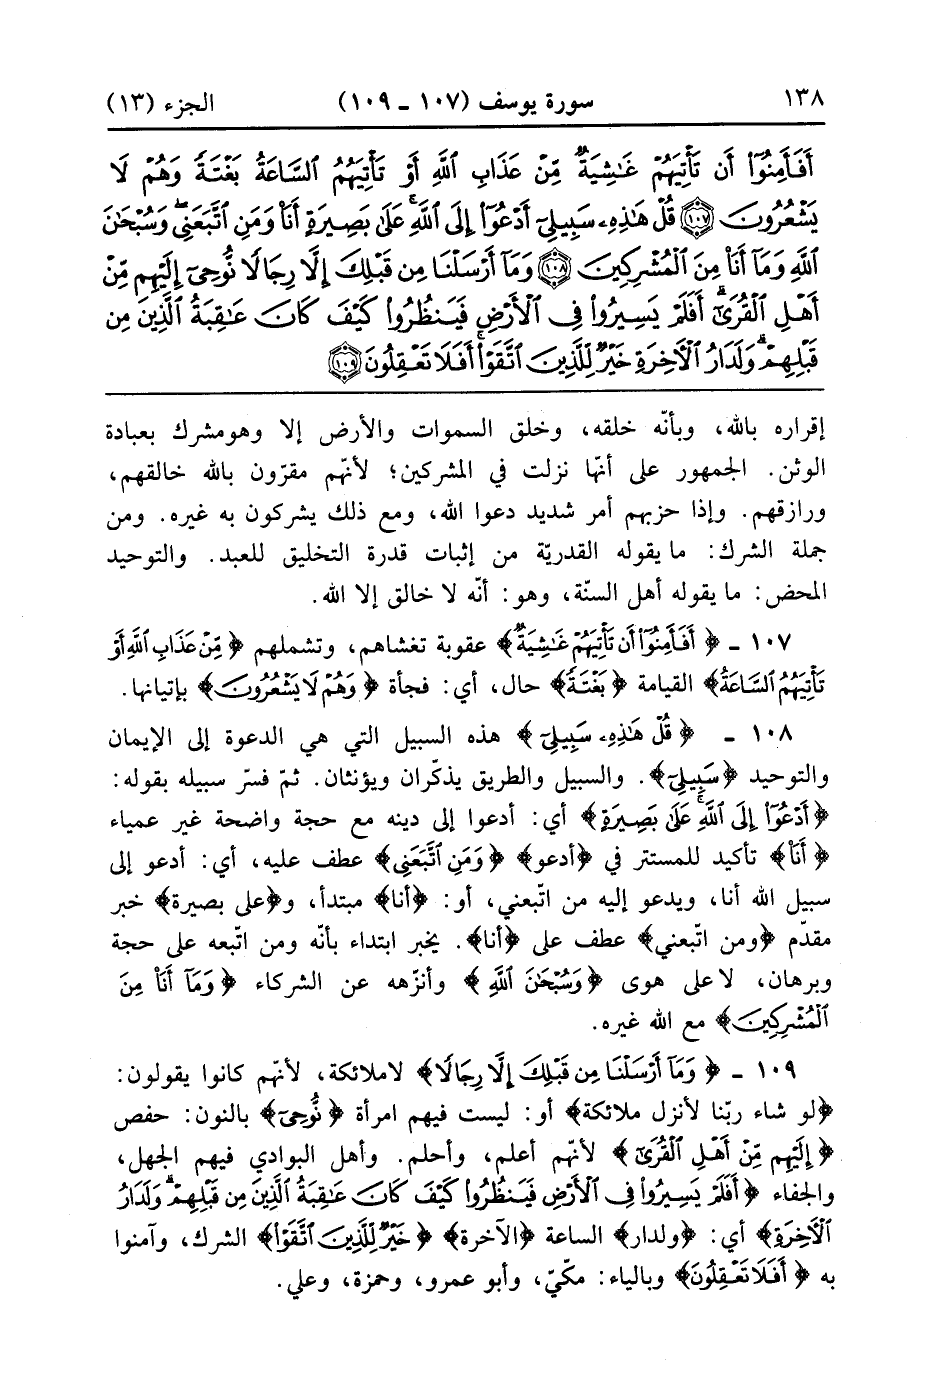 ١٣٨ سورة يوسف (١٠٧ ـ ١٠٩) الجزء (١٣)
أَفَأَمِنُوٓا۟ أَن تَأْتِيَهُمْ غَٰشِيَةٌ مِّنْ عَذَابِ ٱللَّهِ أَوْ تَأْتِيَهُمُ ٱلسَّاعَةُ بَغْتَةً وَهُمْ لَا
يَشْعُرُونَ ﴿١٠٧﴾ قُلْ هَٰذِهِۦ سَبِيلِىٓ أَدْعُوٓا۟ إِلَى ٱللَّهِ ۚ عَلَىٰ بَصِيرَةٍ أَنَا۠ وَمَنِ ٱتَّبَعَنِى ۖ وَسُبْحَٰنَ
ٱللَّهِ وَمَآ أَنَا۠ مِنَ ٱلْمُشْرِكِينَ ﴿١٠٨﴾ وَمَآ أَرْسَلْنَا مِن قَبْلِكَ إِلَّا رِجَالًا نُّوحِىٓ إِلَيْهِم مِّنْ
أَهْلِ ٱلْقُرَىٰٓ ۗ أَفَلَمْ يَسِيرُوا۟ فِى ٱلْأَرْضِ فَيَنظُرُوا۟ كَيْفَ كَانَ عَٰقِبَةُ ٱلَّذِينَ مِن
قَبْلِهِمْ ۗ وَلَدَارُ ٱلْءَاخِرَةِ خَيْرٌ لِّلَّذِينَ ٱتَّقَوْا۟ ۗ أَفَلَا تَعْقِلُونَ ﴿١٠٩﴾
إقراره بالله، وبأنّه خلقه، وخلق السموات والأرض إلا وهومشرك بعبادة
الوثن. الجمهور على أنها نزلت في المشركين؛ لأنّهم مقرّون بالله خالقهم،
ورازقهم. وإذا حزبهم أمر شديد دعوا الله، ومع ذلك يشركون به غيره. ومن
جملة الشرك: ما يقوله القدريّة من إثبات قدرة التخليق للعبد. والتوحيد
المحض: ما يقوله أهل السنّة، وهو: أنّه لا خالق إلا الله.
١٠٧ ـ ﴿أَفَأَمِنُوٓا۟ أَن تَأْتِيَهُمْ غَٰشِيَةٌ﴾ عقوبة تغشاهم، وتشملهم ﴿مِّنْ عَذَابِ ٱللَّهِ أَوْ
تَأْتِيَهُمُ ٱلسَّاعَةُ﴾ القيامة ﴿بَغْتَةً﴾ حال، أي: فجأة ﴿وَهُمْ لَا يَشْعُرُونَ﴾ بإتيانها.
١٠٨ ـ ﴿قُلْ هَٰذِهِۦ سَبِيلِىٓ﴾ هذه السبيل التي هي الدعوة إلى الإيمان
والتوحيد ﴿سَبِيلِىٓ﴾. والسبيل والطريق يذكّران ويؤنثان. ثمّ فسّر سبيله بقوله:
﴿أَدْعُوٓا۟ إِلَى ٱللَّهِ ۚ عَلَىٰ بَصِيرَةٍ﴾ أي: أدعوا إلى دينه مع حجة واضحة غير عمياء
﴿أَنَا۠﴾ تأكيد للمستتر في ﴿أدعو﴾ ﴿وَمَنِ ٱتَّبَعَنِى﴾ عطف عليه، أي: أدعو إلى
سبيل الله أنا، ويدعو إليه من اتّبعني، أو: ﴿أنا﴾ مبتدأ، و﴿على بصيرة﴾ خبر
مقدّم ﴿ومن اتّبعني﴾ عطف على ﴿أنا﴾. يخبر ابتداء بأنّه ومن اتّبعه على حجة
وبرهان، لا على هوى ﴿وَسُبْحَٰنَ ٱللَّهِ﴾ وأنزّهه عن الشركاء ﴿وَمَآ أَنَا۠ مِنَ
ٱلْمُشْرِكِينَ﴾ مع الله غيره.
١٠٩ ـ ﴿وَمَآ أَرْسَلْنَا مِن قَبْلِكَ إِلَّا رِجَالًا﴾ لاملائكة، لأنّهم كانوا يقولون:
﴿لو شاء ربّنا لأنزل ملائكة﴾ أو: ليست فيهم امرأة ﴿نُّوحِىٓ﴾ بالنون: حفص
﴿إِلَيْهِم مِّنْ أَهْلِ ٱلْقُرَىٰٓ﴾ لأنّهم أعلم، وأحلم. وأهل البوادي فيهم الجهل،
والجفاء ﴿أَفَلَمْ يَسِيرُوا۟ فِى ٱلْأَرْضِ فَيَنظُرُوا۟ كَيْفَ كَانَ عَٰقِبَةُ ٱلَّذِينَ مِن قَبْلِهِمْ ۗ وَلَدَارُ
ٱلْءَاخِرَةِ﴾ أي: ﴿ولدار﴾ الساعة ﴿الآخرة﴾ ﴿خَيْرٌ لِّلَّذِينَ ٱتَّقَوْا۟﴾ الشرك، وآمنوا
به ﴿أَفَلَا تَعْقِلُونَ﴾ وبالياء: مكّيّ، وأبو عمرو، وحمزة، وعلي.